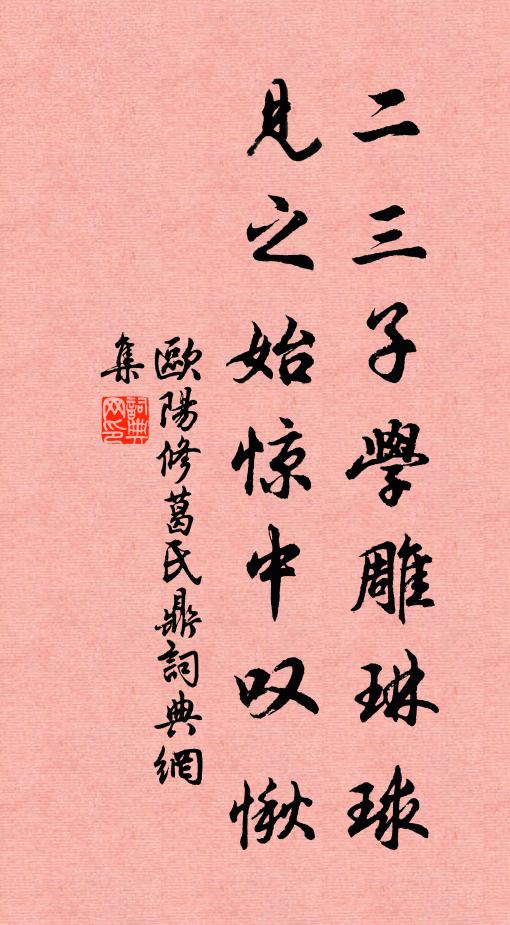 二三子學雕琳球
見之始惊中叹愀
歐陽修葛氏鼎詞典網
集
詞典網印